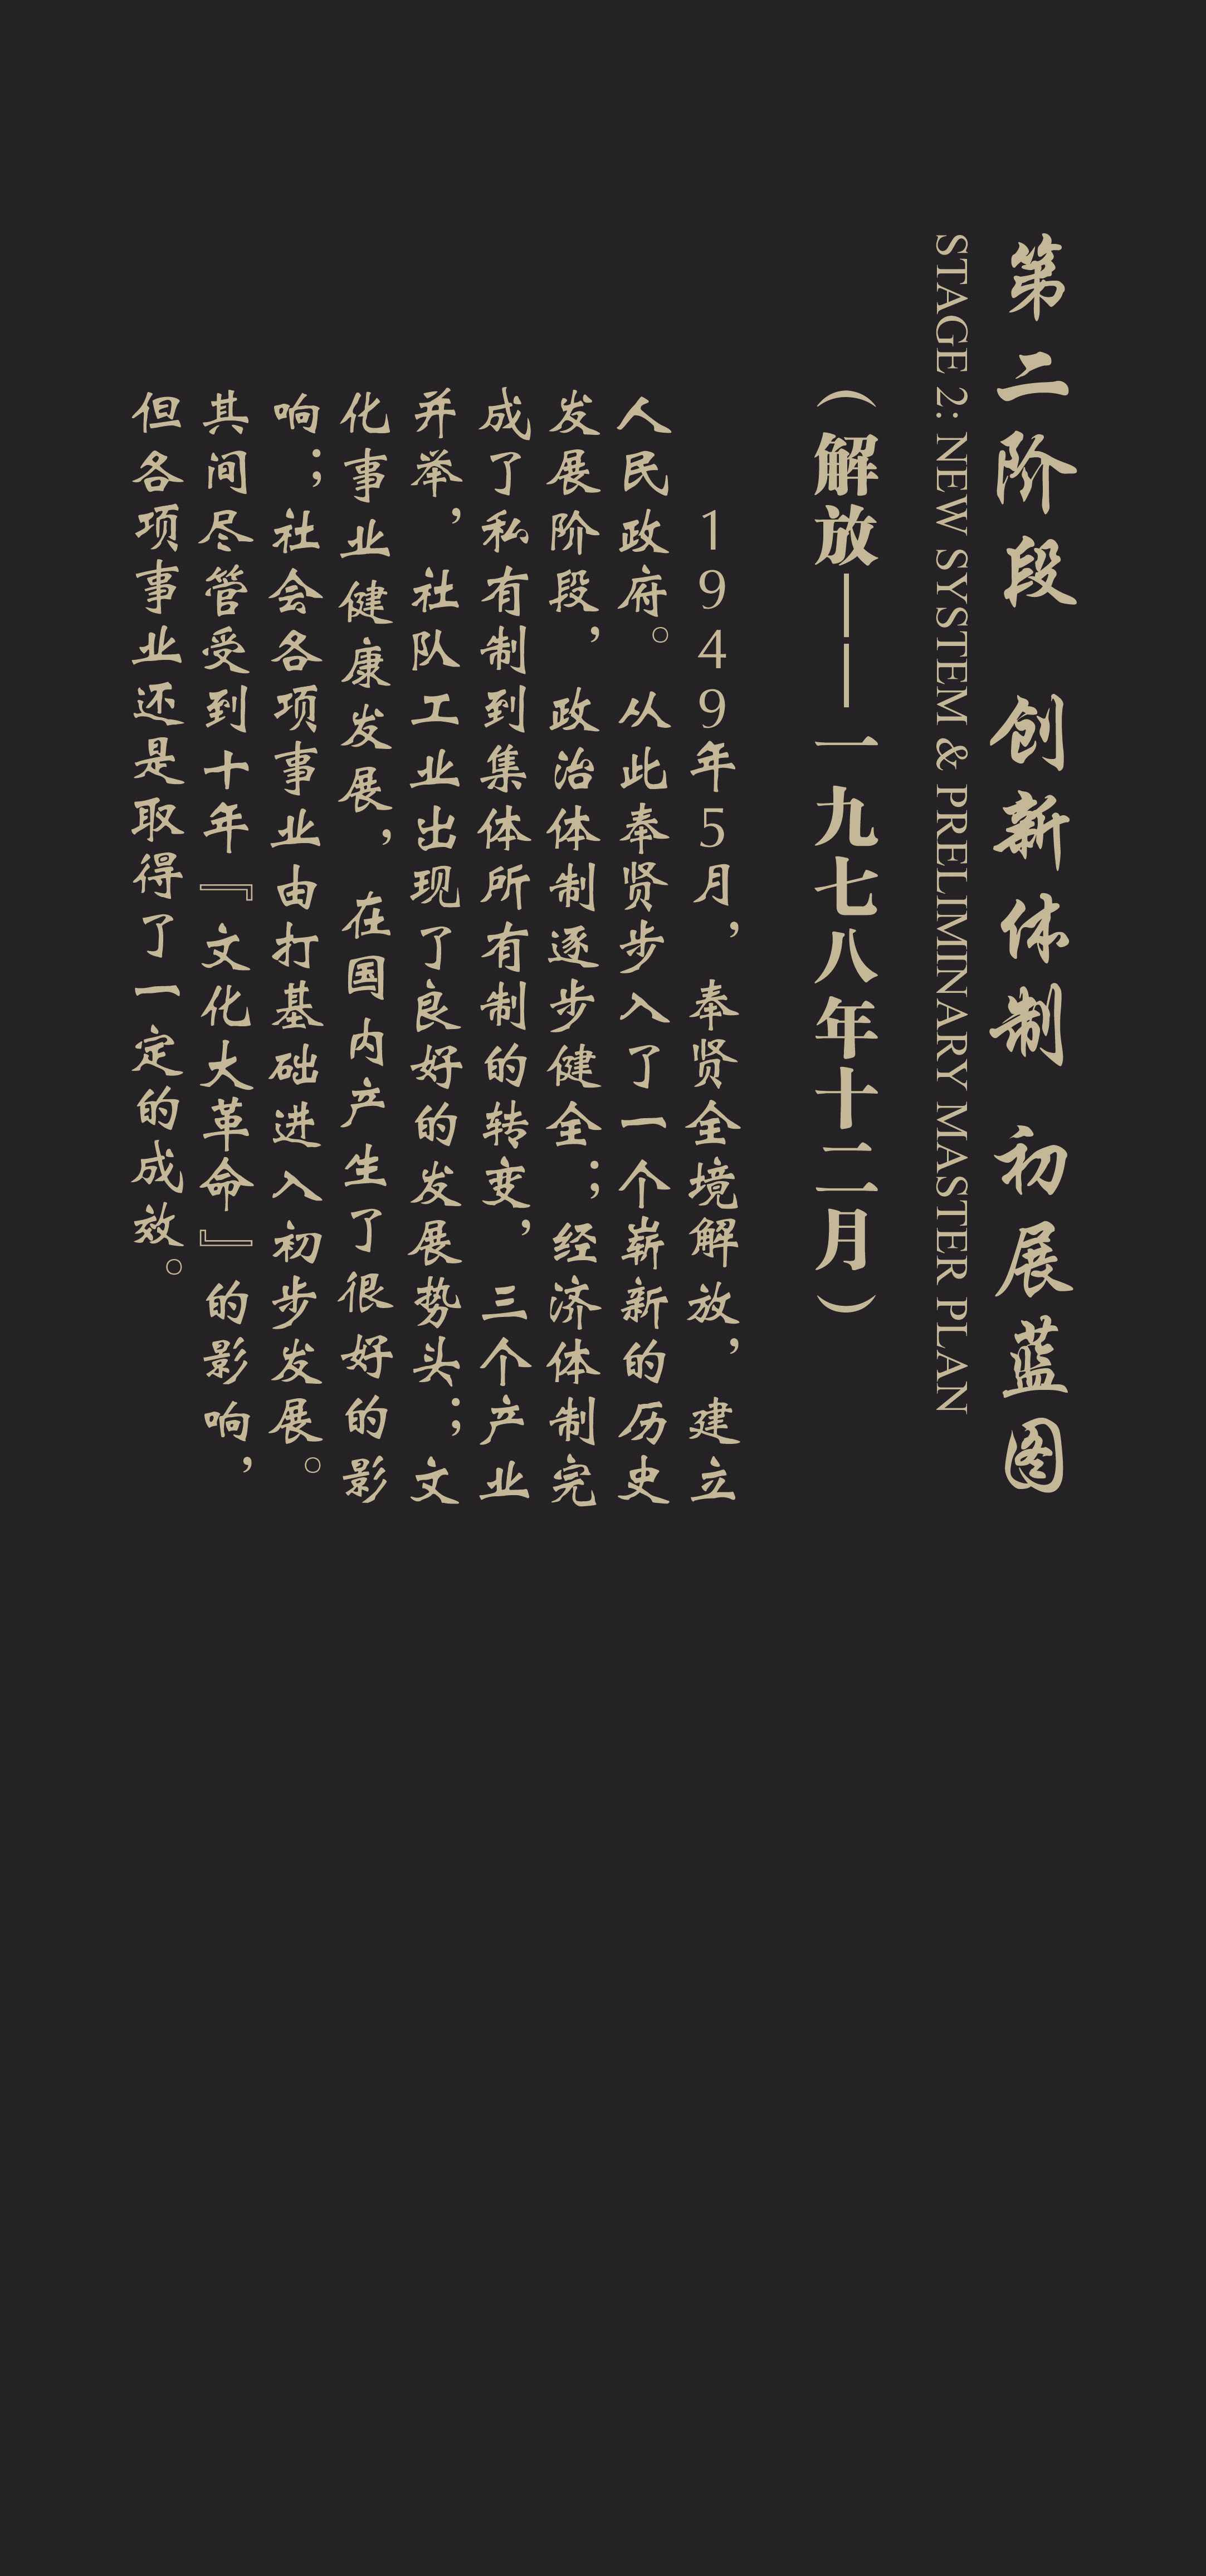 第二阶段 创新体制 初展蓝图
STAGE 2: NEW SYSTEM & PRELIMINARY MASTER PLAN
（解放——一九七八年十二月）
1949年5月，奉贤全境解放，建立
人民政府。从此奉贤步入了一个崭新的历史
发展阶段，政治体制逐步健全；经济体制完
成了私有制到集体所有制的转变，三个产业
并举，社队工业出现了良好的发展势头；文
化事业健康发展，在国内产生了很好的影
响；社会各项事业由打基础进入初步发展。
其间尽管受到十年『文化大革命』的影响，
但各项事业还是取得了一定的成效。